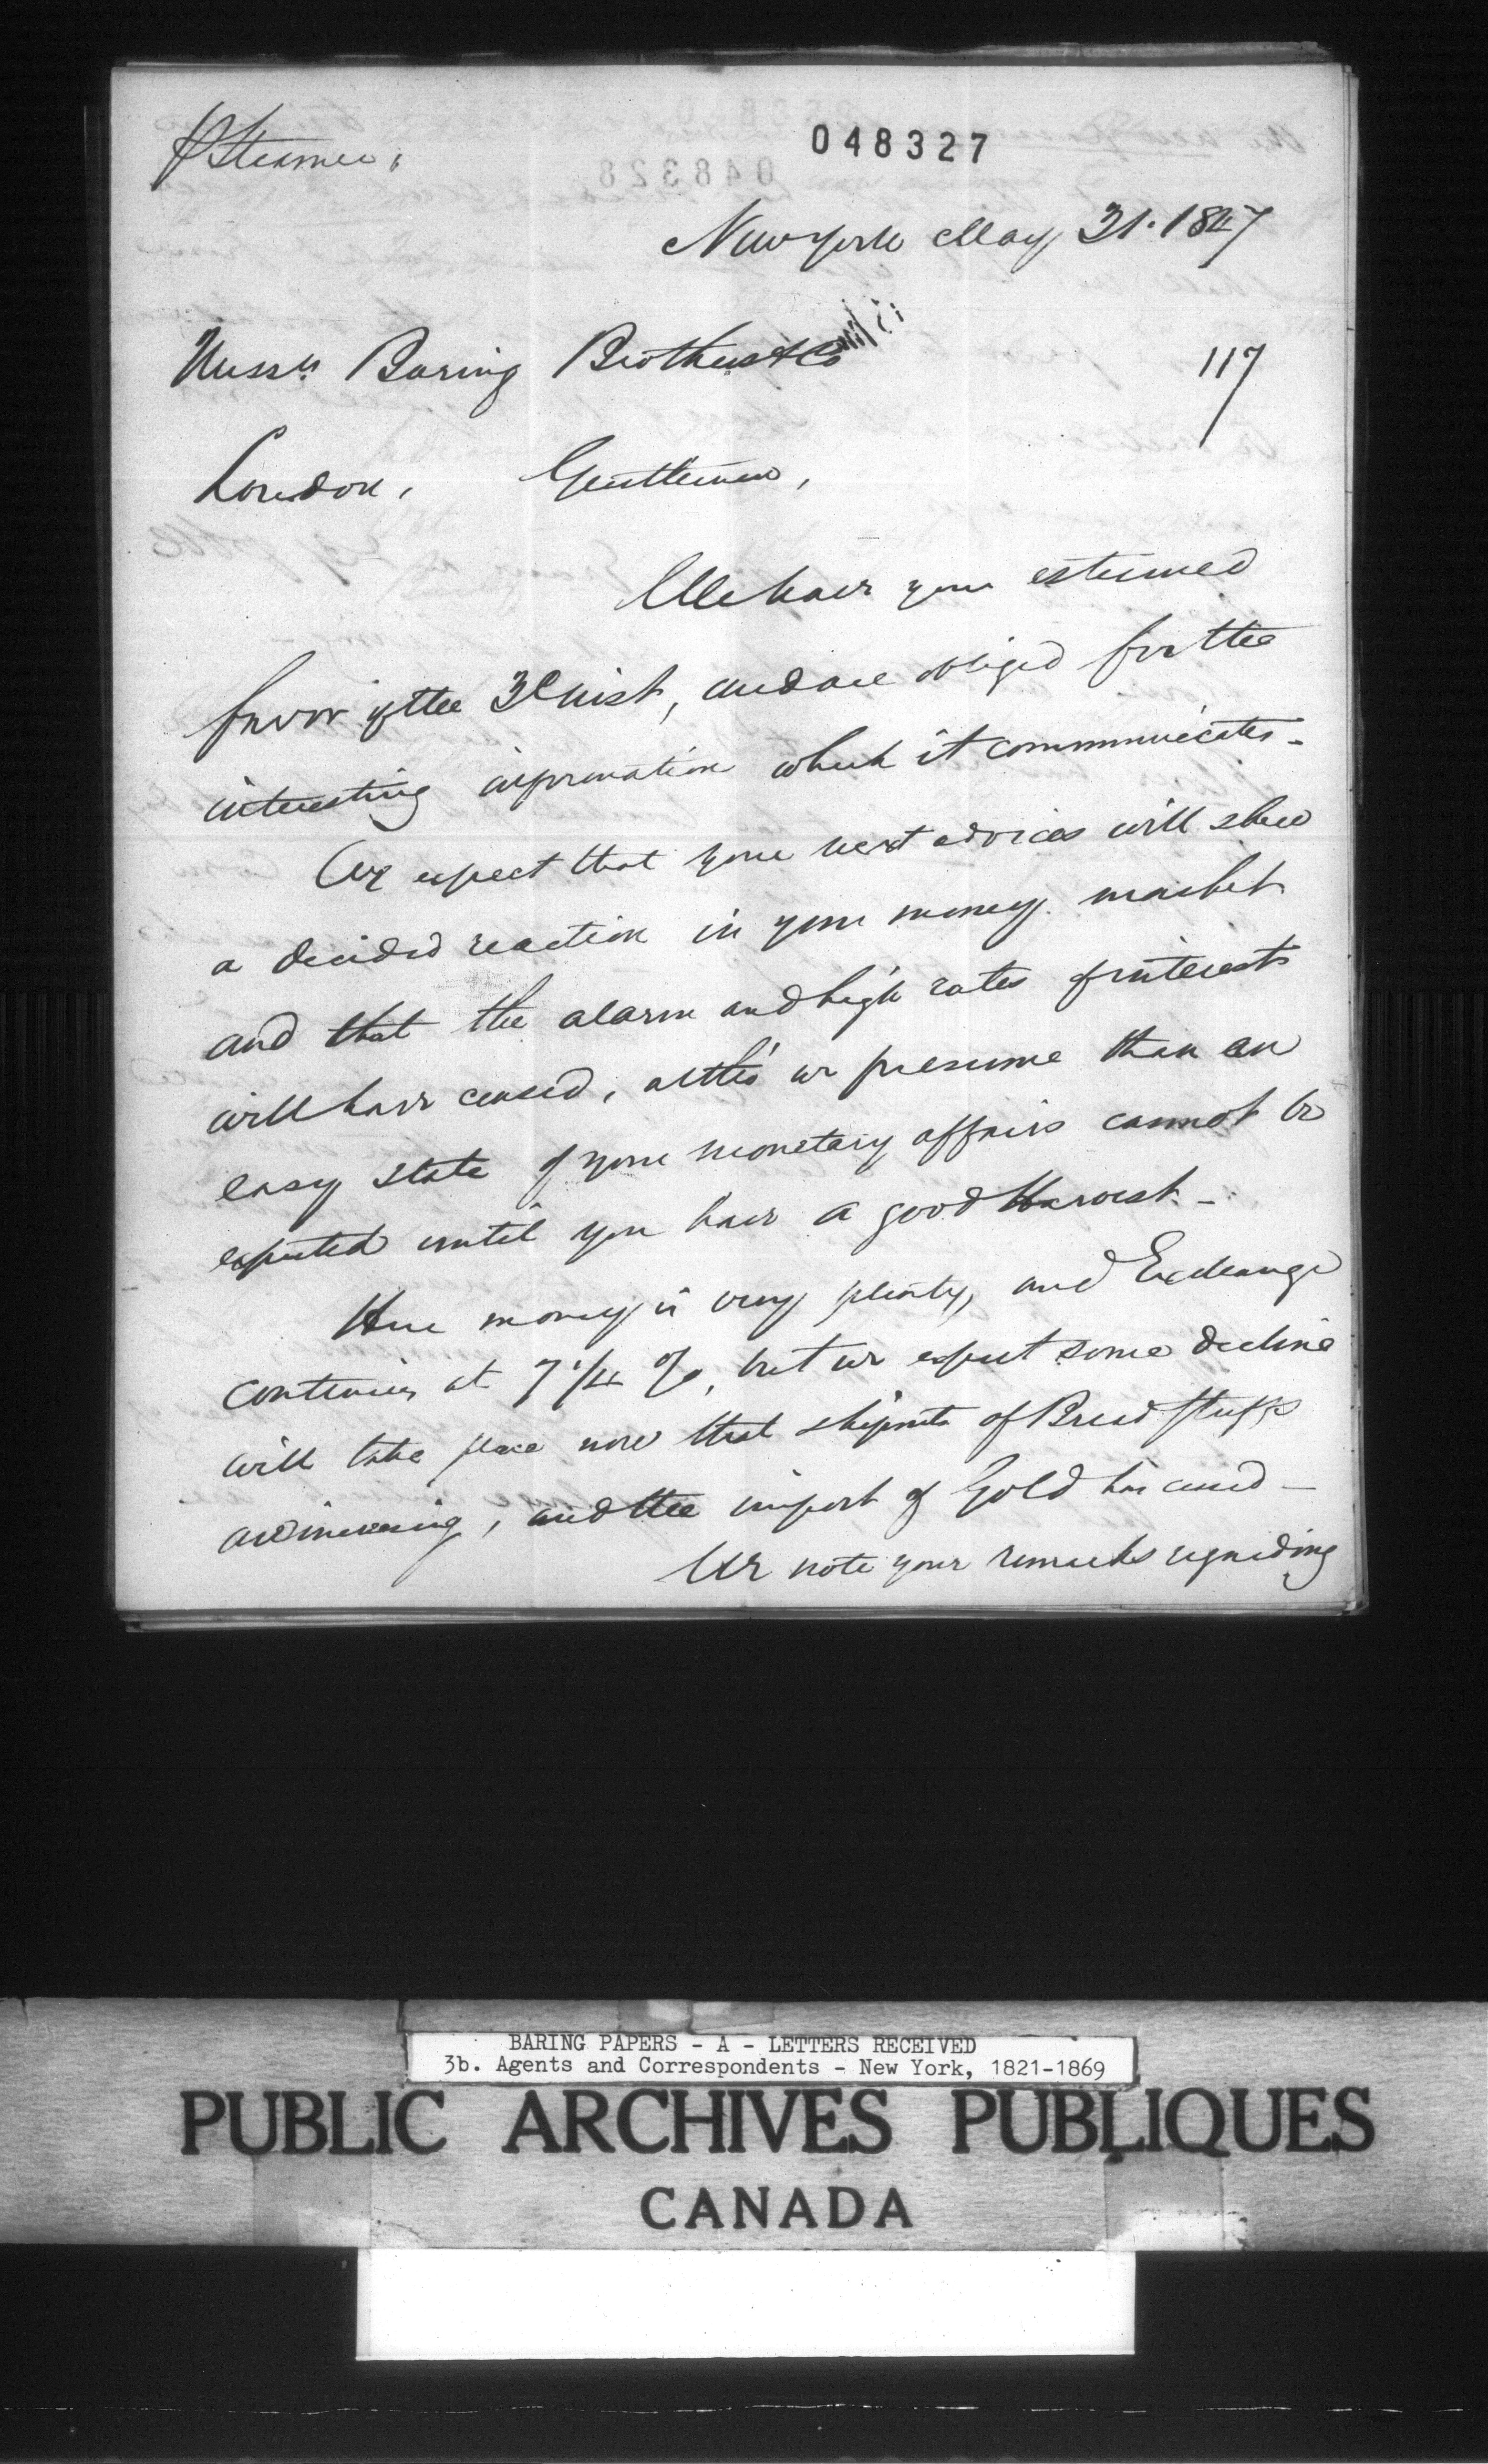 ℗ Steamer.
048327
048328
New York May 31. 1847
Messrs. Baring Brothers & Co
117
London. Gentlemen,
We have your esteemed
favor of the 3d inst, and are obliged for the
interesting information which it communicates -
We expect that your next advices will shew
a decided reaction in your money market
and that the alarm and high rates of interests
will have ceased, altho' we presume than an
easy state of your monetary affairs cannot be
expected until you have a good Harvest -
Here money is very plenty, and Exchange
continues at 7 1/4 %, but we expect some decline
will take place now that shipmts of Bread stuffs
are increasing, and the import of Gold has ceased -
We note your remarks regarding
BARING PAPERS - A - LETTERS RECEIVED
3b. Agents and Correspondents - New York, 1821-1869
PUBLIC ARCHIVES PUBLIQUES
CANADA